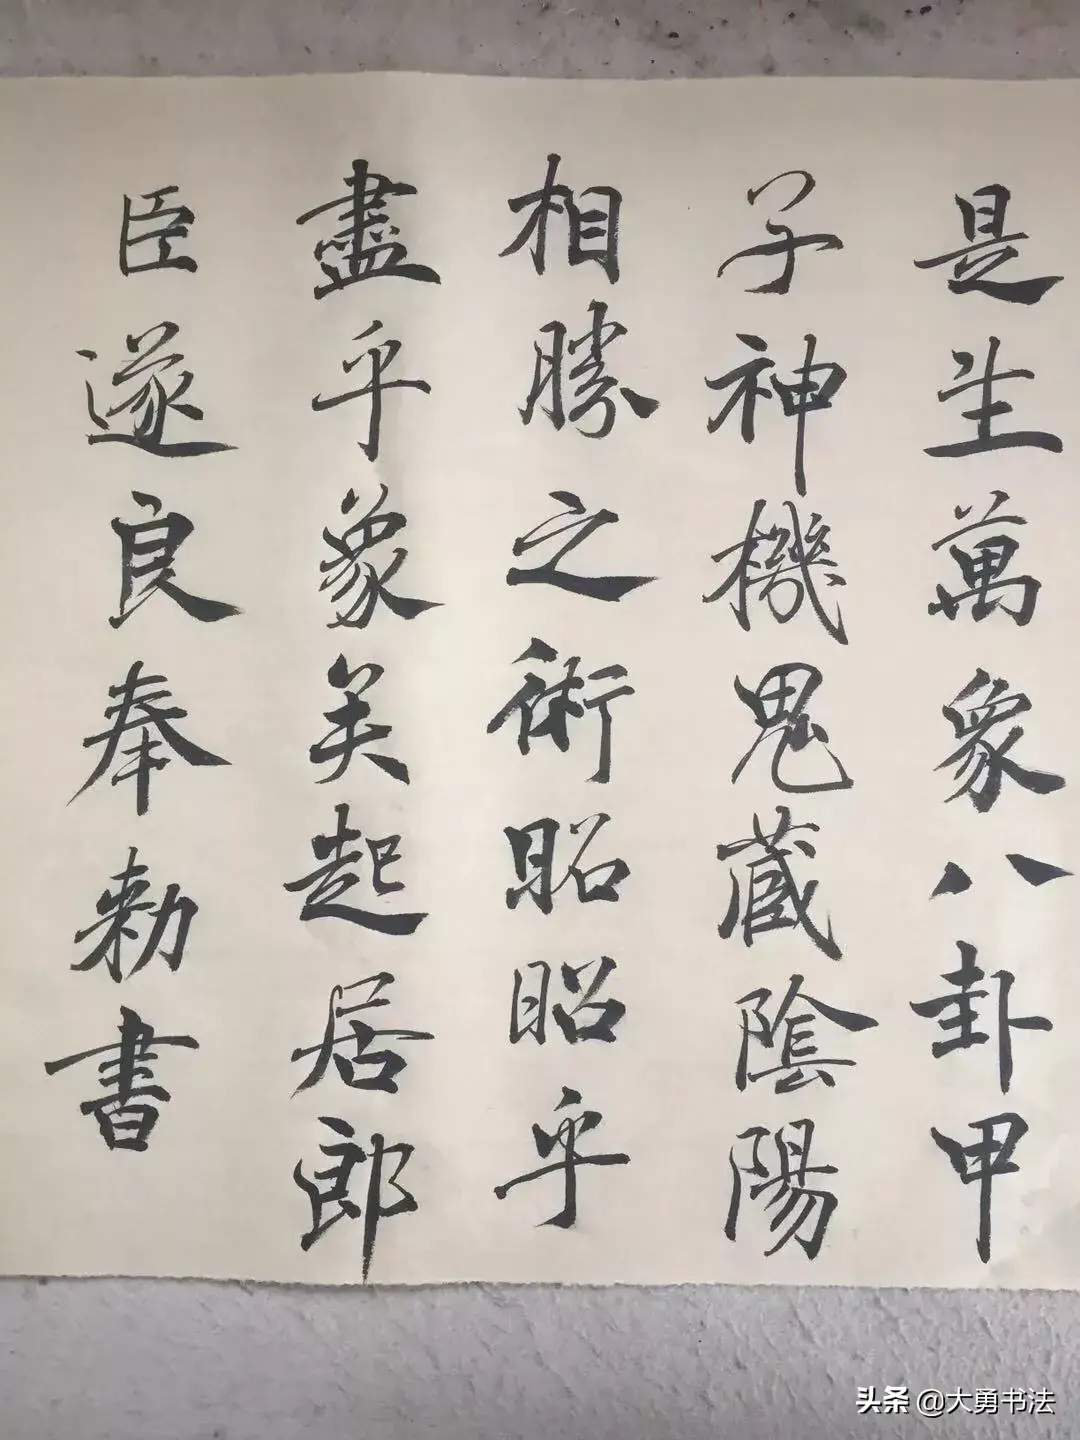 是生萬象八卦甲
子神機鬼藏陰陽
相勝之術昭昭乎
盡乎象矣起居郎
臣遂良奉勅書
头条 @大勇书法